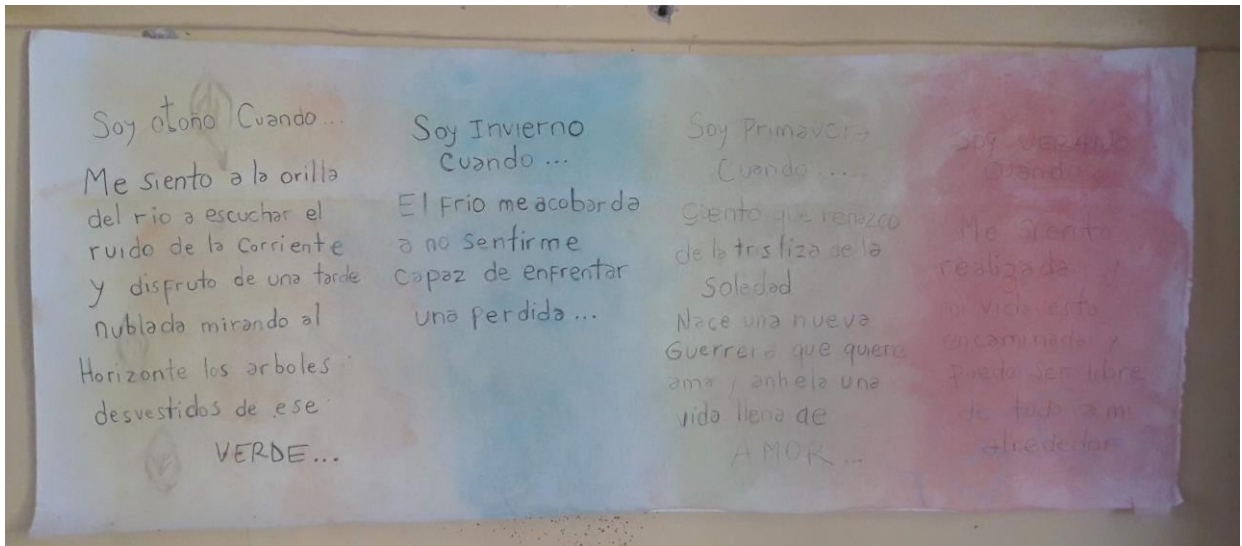 Soy otoño Cuando...
Me siento a la orilla
del rio a escuchar el
ruido de la Corriente
y disfruto de una tarde
nublada mirando al
Horizonte los arboles
desvestidos de ese
VERDE...
Soy Invierno
Cuando...
El Frio me acobarda
a no sentirme
capaz de enfrentar
una perdida...
Soy Primavera
Cuando....
Siento que renazco
de la tristiza de la
Soledad
Nace una nueva
Guerrera que quiere
amar y anhela una
vida llena de
AMOR...
SOY VERANO
Cuando
Me Siento
realizada y
mi vida esta
encaminada y
puedo ser libre
de todo a mi
alrededor